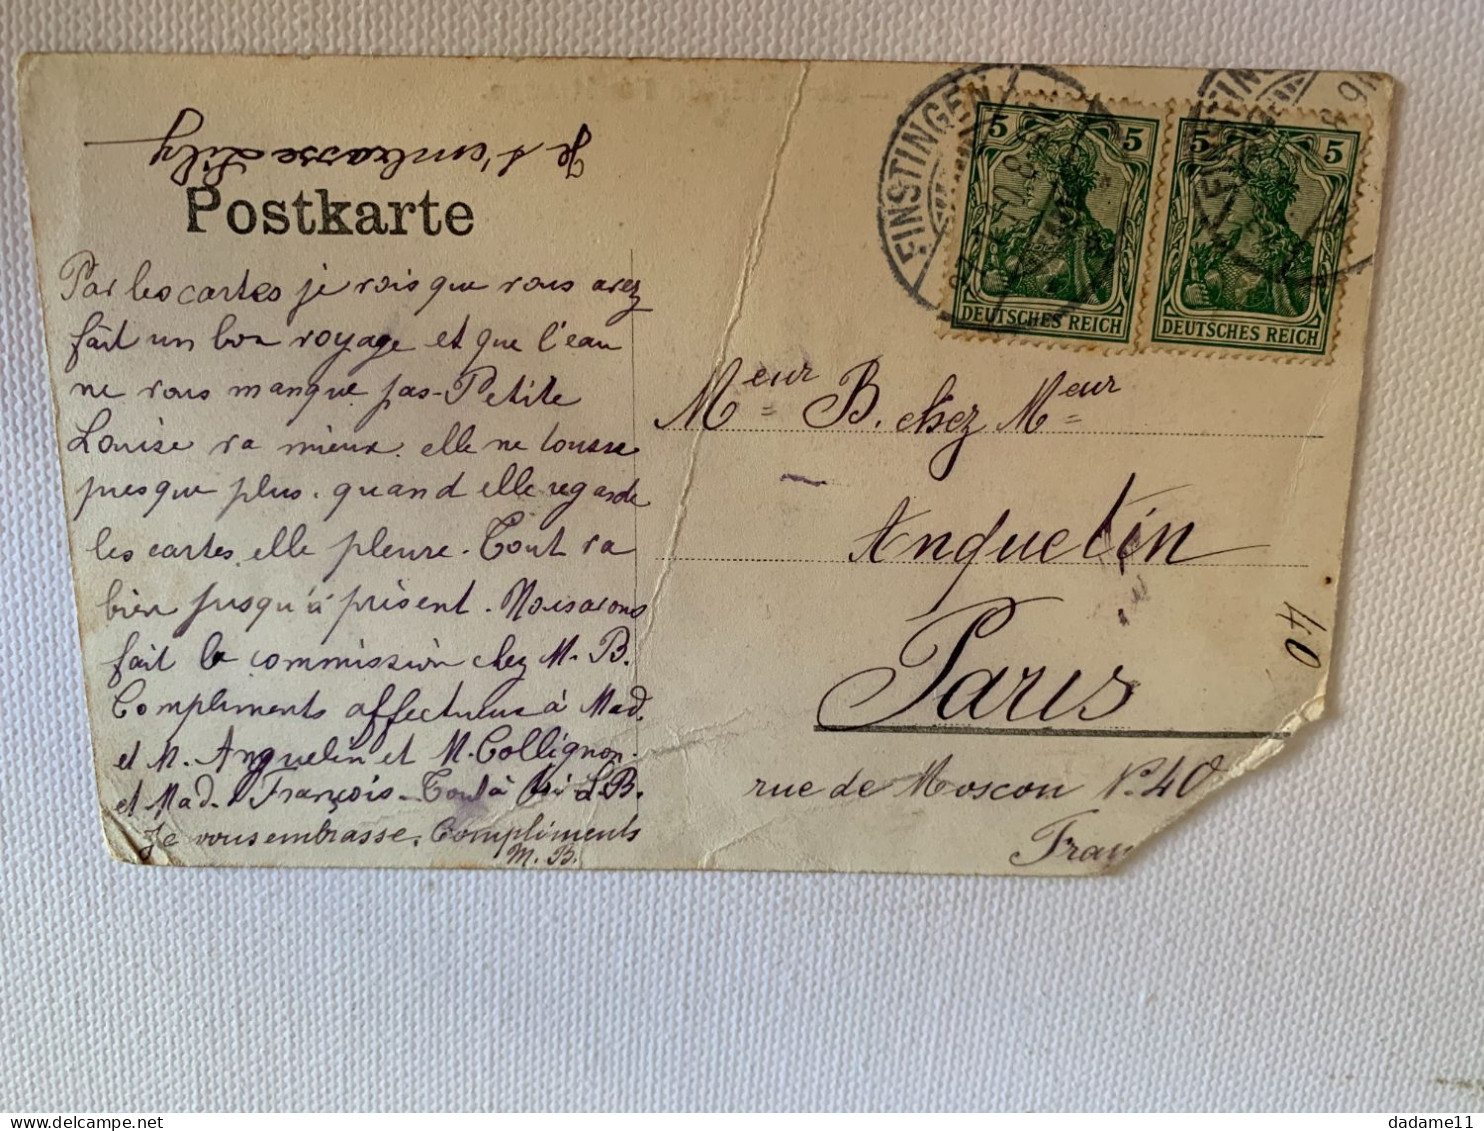 Je t'embrasse Lily
Postkarte
Par les cartes je vois que vous avez
fait un bon voyage et que l'eau
ne vous manque pas - Petite
Louise va mieux. elle ne tousse
presque plus. quand elle regarde
les cartes elle pleure - Tout va
bien jusqu'à présent. Nous avons
fait la commission chez M. B.
Compliments affectueux à Mad.
et M. Anquetin et M. Collignon -
et Mad. François - Tout à L. B.
Je vous embrasse. Compliments
M. B.
FINSTINGEN
5 5
DEUTSCHES REICH
5 5
DEUTSCHES REICH
Meur B. chez Meur
Anquetin
Paris
rue de Moscou No. 40
Fran
40
dadame11